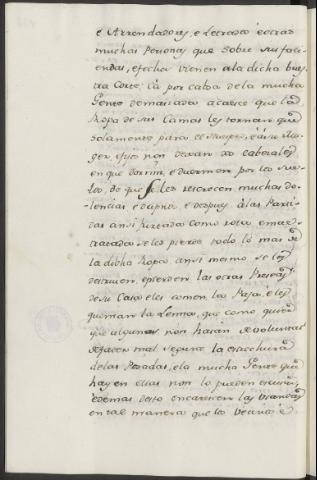 e Arrendadores, e Letrados e otras
muchas Personas que sobre sus faci-
endas, e fecha vienen a la dicha bues-
tra Corte: ca por cabsa de la mucha
Gente demasiada acaesce que la
Ropa de sus Camas les toman que
solamente para el e su Mu-
ger, e fijos non dexan so
en que dormir, e duermen por los sue-
los, de que se les recrecen muchas do-
lencias e daños, e despues a las Parti-
das ansi furtado como roto e mal
tratado se les pierde todo lo mas de
la dicha Ropa ansi mesmo se les
destruien, e pierden las otras
de su Casa e les comen la Paja, e les
queman la Lenna, que como quiera
que algunos non haran de voluntad
de facer mal segunt la estrechura
de las Posadas, e la mucha Gente que
hay en ellas non lo pueden escusar,
e demas desto encarecen las viandas
en tal manera que los vecinos e